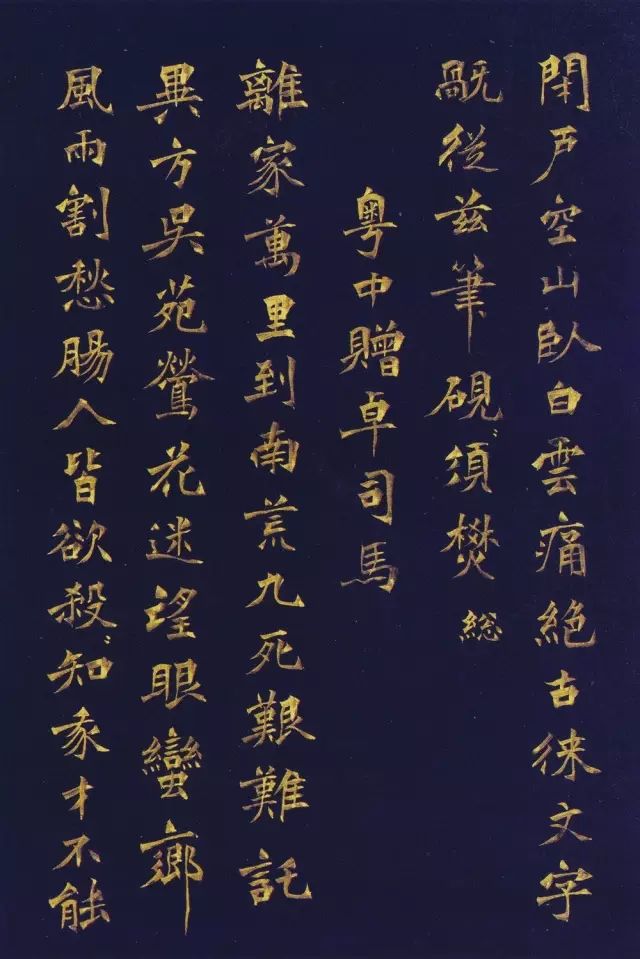 閇户空山臥白雲痛絕古徠文字
旤從茲筆硯須燓総
粵中贈卓司馬
離家萬里到南荒九死艱難託
異方吳苑鶯花迷望眼蠻鄉
風雨割愁腸人皆欲殺知才不能